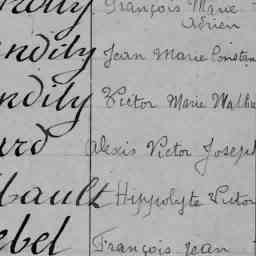 François Marie
Adrien
ndily Jean Marie Constan
ndily Victor Marie
ard Alexis Victor Joseph
bault Hippolyte Victor
ebel François Jean